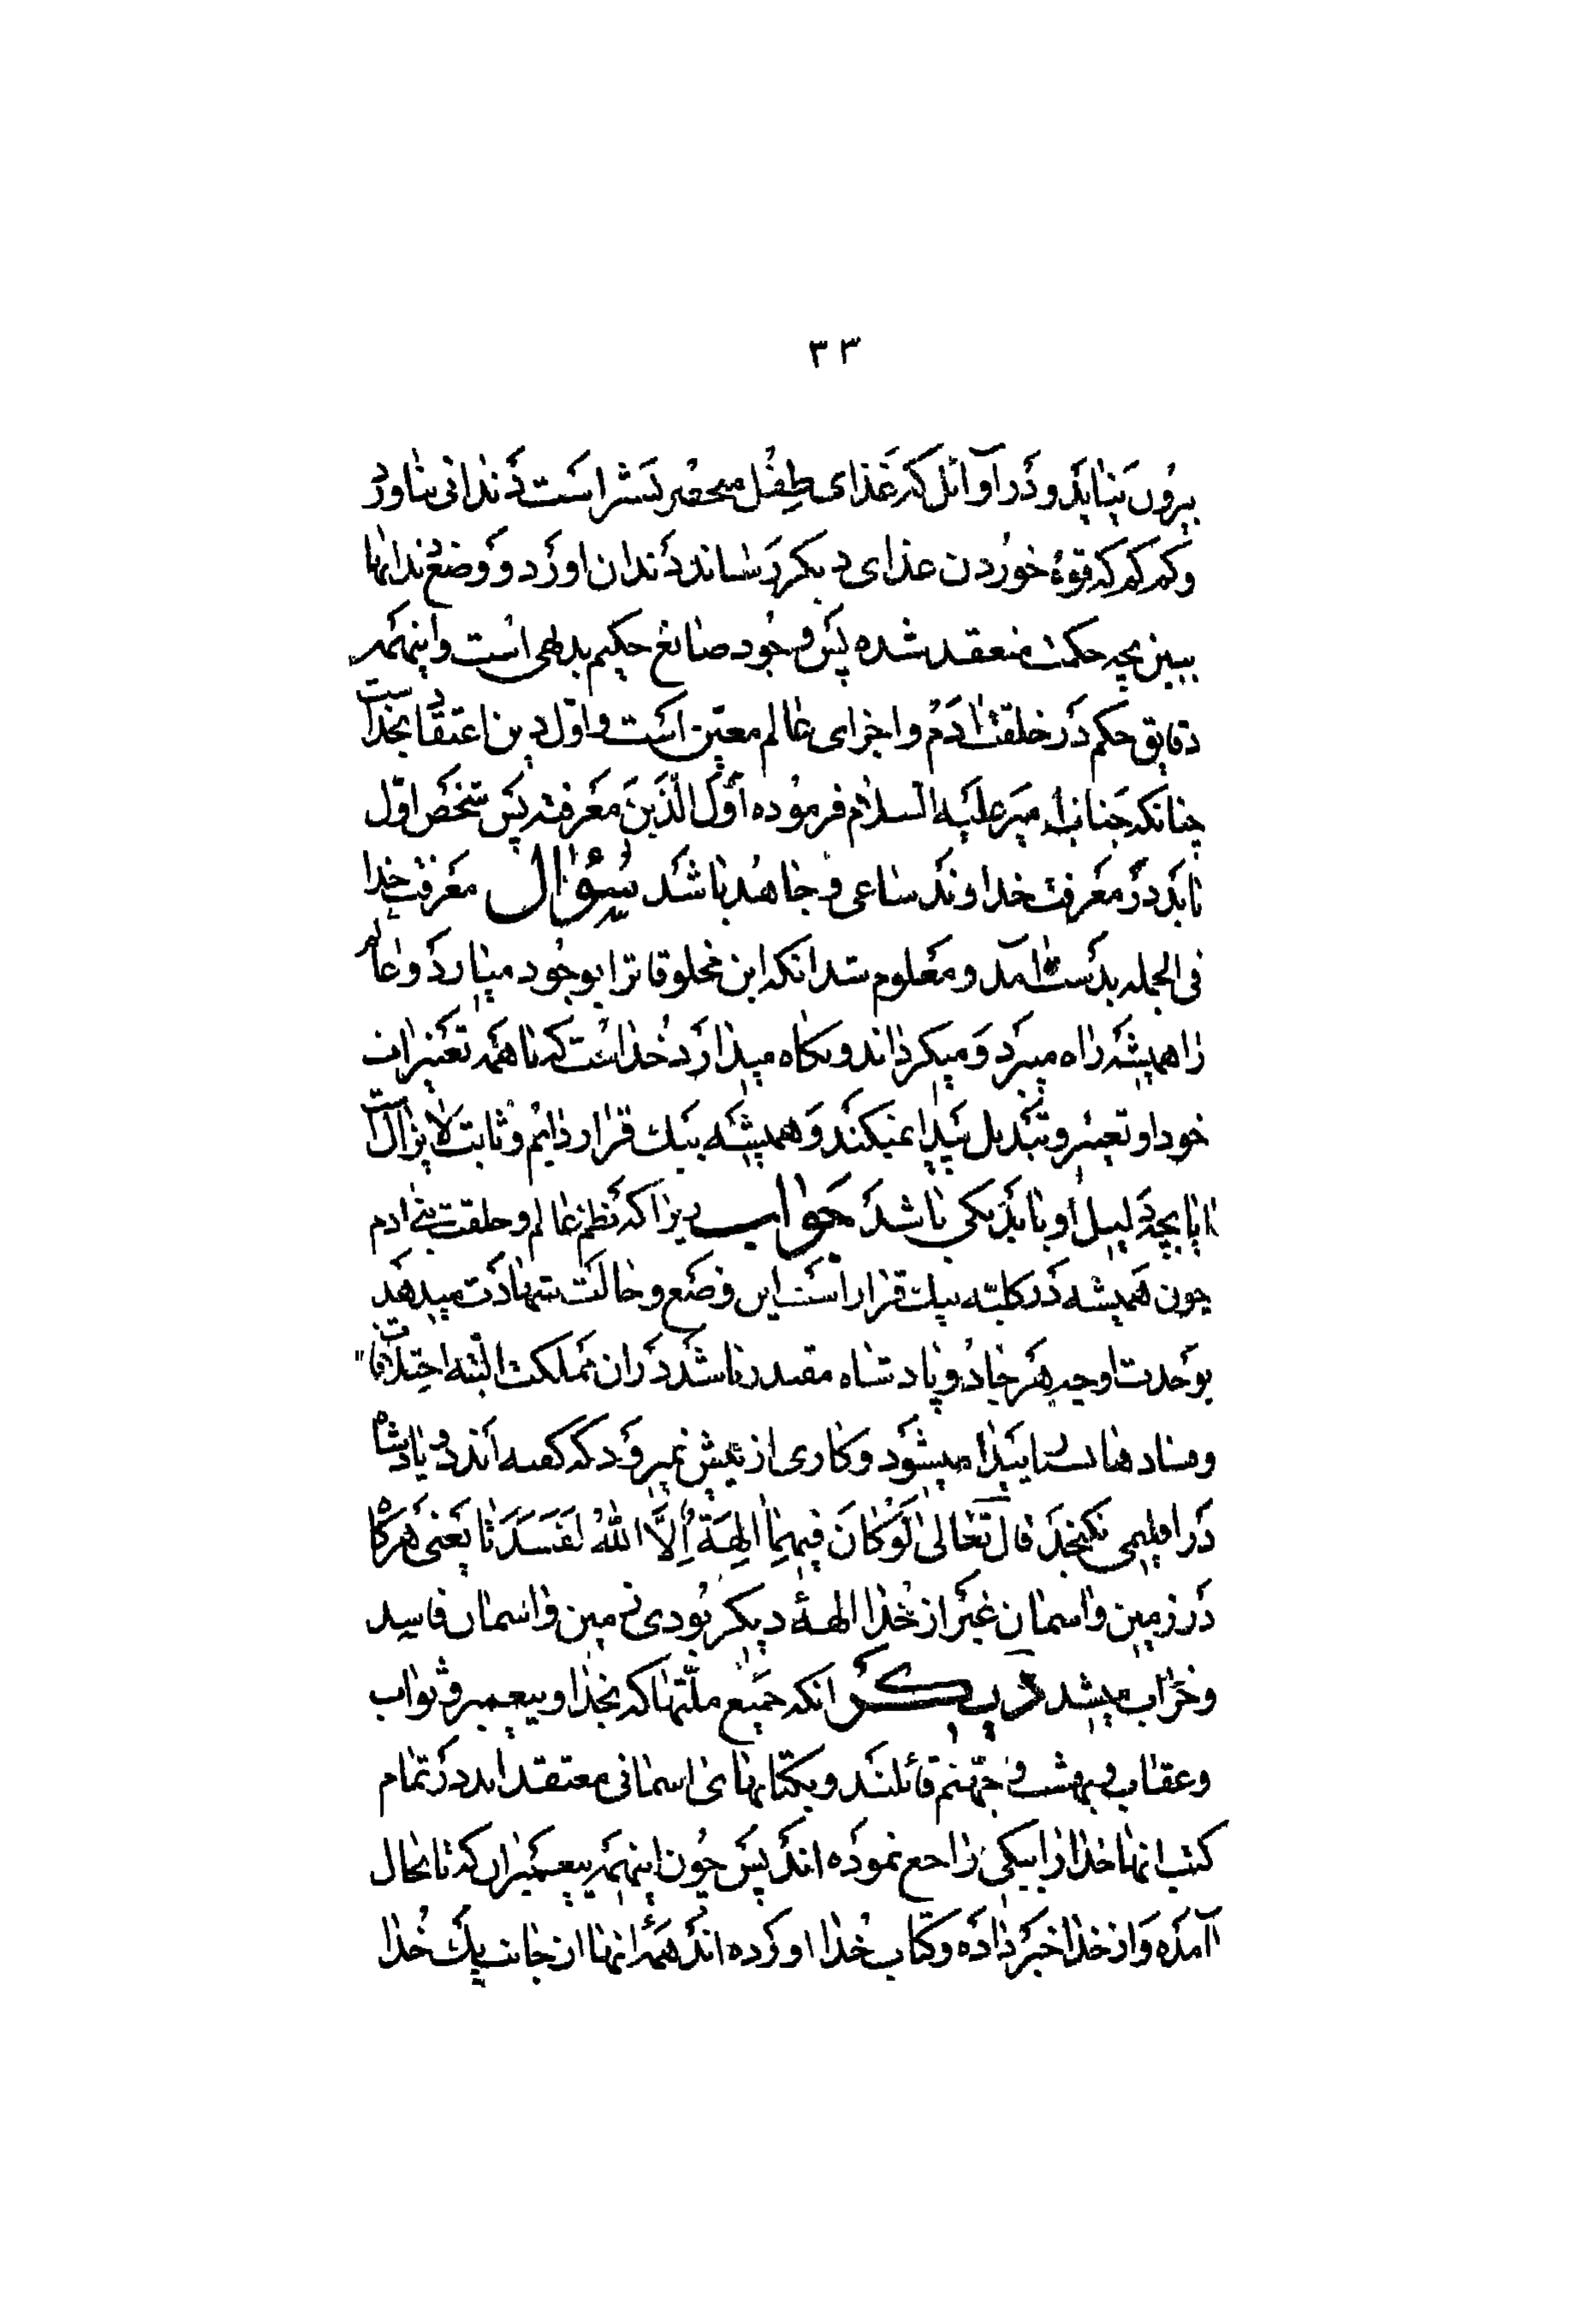 ٣٣
بیرون نیاید و در اوائل که غذای طفل منحصر بشیر است دندانی نیاورد
و کم کم که قوهٔ خوردن غذای دیگر رساند دندان اورد و وضع دندانها
ببین بچه حکمت منعقد شده پس وجود صانع حکیم بدیهی است و اینهمه
دقایق حکم در خلقت ادم و اجزای عالم معین است و اول دین اعتقاد بخداست
چنانکه جناب امیر علیه السلام فرموده اَوَّلُ الدّینِ مَعرفته پس شخص اول
باید در معرفت خداوند ساعی و جاهد باشد سُؤال معرفت خدا
فی الجمله بدست آمد و معلوم شد انکه این مخلوقاترا بوجود میاارد و عالم
را همیشه راه میبرد و میگرداند و نگاه میدارد خداست که با همه تغییرات
خود او تغییر و تبدیل پیدا نمیکند و همیشه بیک قرار دایم و ثابت لایزال است
ایا بچه دلیل او باید یکی باشد جَواب زیرا که نظم عالم و خلقت بنی ادم
چون همیشه در کلیه بیک قرار است این وضع و حالت شهادت میدهد
بوحدت او چه هر جا دو پادشاه مقتدر باشد در ان مملکت البته اختلافات
و فسادها پیدا میشود و کاری از پیش نمیرود که گفته اند دو پادشاه
در اقلیمی نگنجد قال تعالی لَوْ کانَ فیهِما الِهَةٌ اِلَّا اللهُ لَفَسَدَتا یعنی هر گاه
در زمین و اسمان غیر از خدا الههٔ دیگر بودی زمین و اسمان فاسد
و خراب میشد دیگر انکه جمیع ملتها که بخدا و پیغمبر و ثواب
و عقاب و بهشت و جهنم قائلند و بکتابهای اسمانی معتقد اند در تمام
کتب انها خدا را بیکی راجع نموده اند پس چون اینهمه پیغمبران که تا بحال
آمده و از خدا خبر داده و کتاب خدا اورده اند همه انها از جانب یک خدا